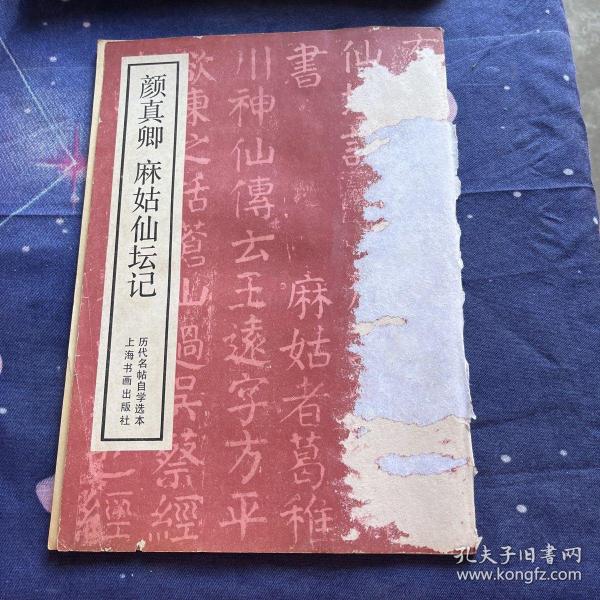 颜真卿 麻姑仙坛记
历代名帖自学选本
上海书画出版社
仙
書 麻姑者葛稚
川神仙傳云王遠字方平
欲東之括蒼山過吳蔡經
經
孔夫子旧书网
www.kongfz.com